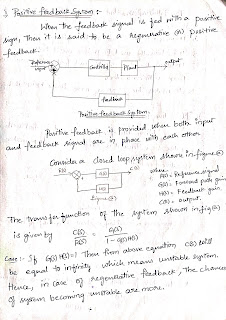 Positive feedback System :-
When the feedback signal is fed with a positive
sign, Then it is said to be a Regenerative (or) positive
feedback.
Reference
input
Controller
Plant
output
Feedback
Positive feedback System.
Positive feedback is provided when both input
and feedback signal are in phase with each other.
Consider a closed loop system shown in figure
R(s)
G(s)
C(s)
H(s)
where,
R(s) = Reference signal
G(s) = Forward path gain
H(s) = Feedback gain
C(s) = output.
The transfer function of the system shown in fig
is given by C(s)/R(s) = G(s)/1 - G(s)H(s)
Case :- If G(s)H(s)=1 Then from above equation C(s) will
be equal to infinity which means unstable system.
Hence, in case of regenerative feedback, the chances
of system becoming unstable are more.